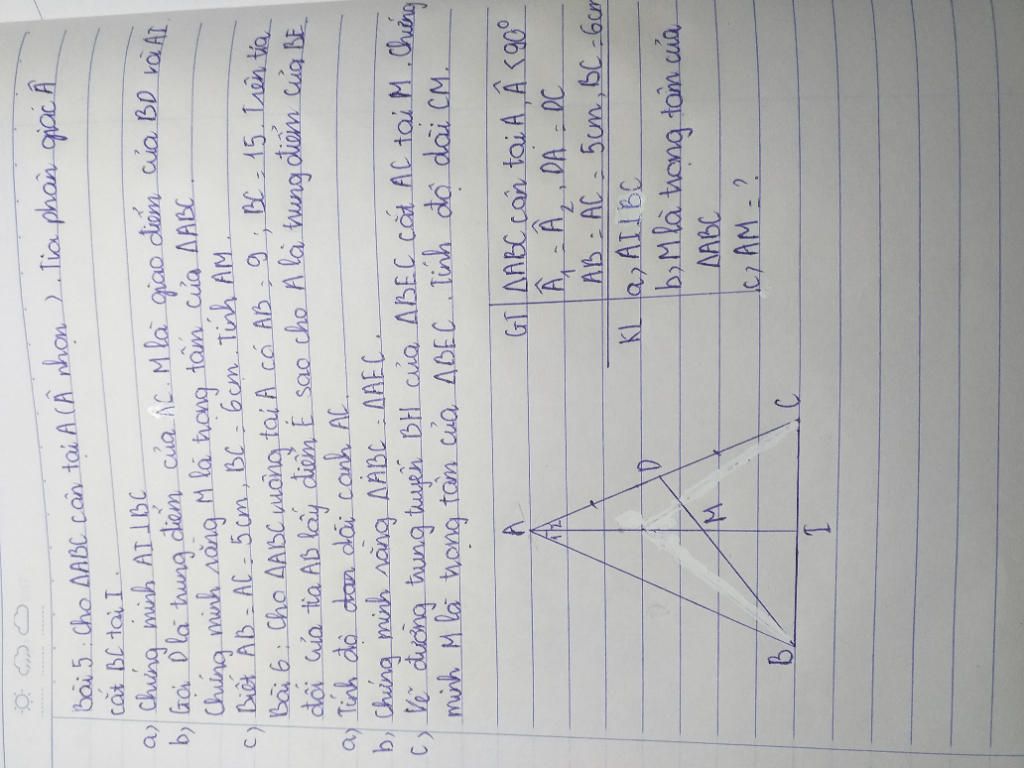 Bài 5: Cho ΔABC cân tại A (Â nhọn). Tia phân giác Â
cắt BC tại I.
a) Chứng minh AI⊥BC
b) Gọi D là trung điểm của AC. M là giao điểm của BD với AI
Chứng minh rằng M là trọng tâm của ΔABC.
c) Biết AB = AC = 5cm, BC = 6cm. Tính AM.
Bài 6: Cho ΔABC vuông tại A có AB = 9; BC = 15. Trên tia
đối của tia AB lấy điểm E sao cho A là trung điểm của BE
a) Tính độ dài cạnh AC
b, Chứng minh rằng ΔABC = ΔAEC.
c) Vẽ đường trung tuyến BH của ΔBEC cắt AC tại M. Chứng
minh M là trọng tâm của ΔBEC. Tính độ dài CM.
GT ΔABC cân tại A, Â < 90°
Â1 = Â2, DA = DC
AB = AC = 5cm, BC = 6cm
KL a, AI⊥BC
b, M là trọng tâm của
ΔABC
c, AM = ?
A
1 2
D
M
B
I
C